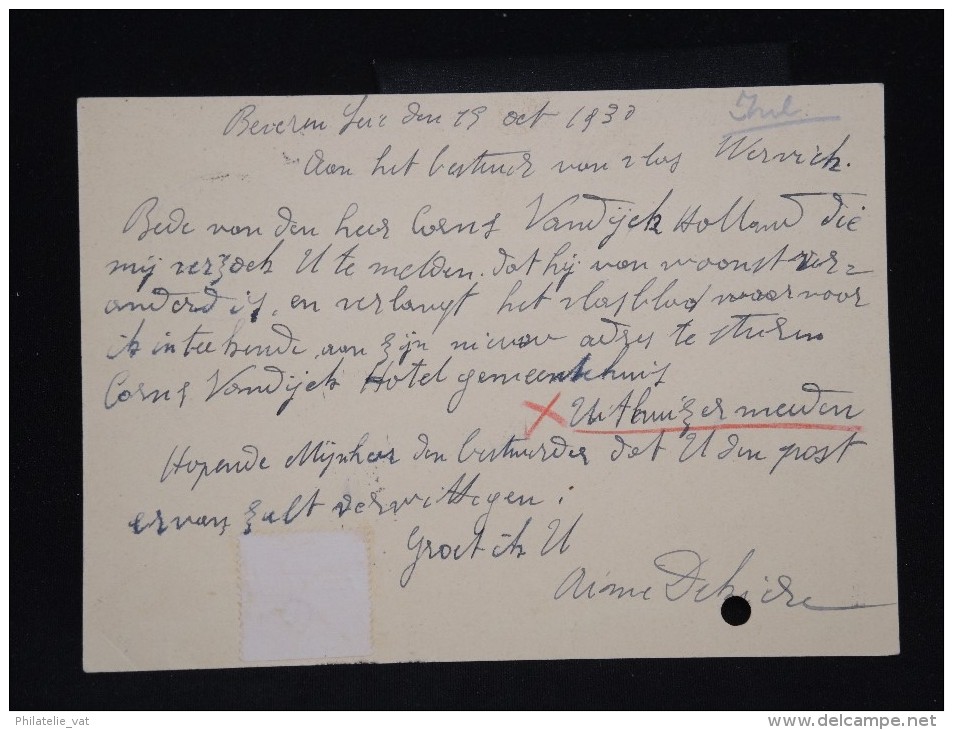 Beveren Leie den 19 oct 1930
Aan het bestuur van vlas Wervick.
Bede van den heer Corns Vandijck Holland die
mij verzoek U te melden. dat hij van woonst ver=
anderd is, en verlangt het vlasblad waarvoor
ik inteekende, aan zijn nieuw adres te sturen
Corns Vandijck Hotel gemeentehuis
X Uithuizermeeden
Hopende Mijnheer den bestuurder dat U den post
ervan zult verwittegen.
Groet ik U
Aimé
Philatelie_vat
www.delcampe.net